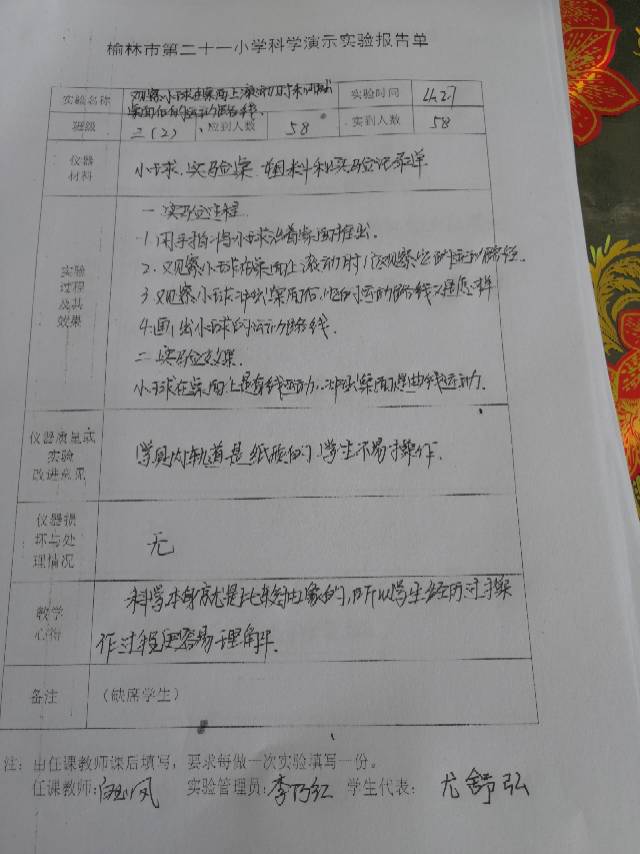 榆林市第二十一小学科学演示实验报告单
实验名称 观察小球在桌面上滚动时和冲出桌面后的运动路线 实验时间 4.27
班级 三(2) 应到人数 58 实到人数 58
仪器材料 小球、实验桌、相关材料和实验记录单
实验过程及其效果
一 实验过程
1.用手指将小球沿着桌面推出.
2.观察小球在桌面上滚动时,该观察它的运动路径.
3 观察小球冲出桌面后,它的运动路线又是怎样
4.画出小球的运动路线.
二 实验效果.
小球在桌面上是直线运动,冲出桌面是曲线运动.
仪器质量或实验改进意见 学具内轨道是纸质的,学生不易于操作.
仪器损坏与处理情况 无
教学心得 科学本身就是比较抽象的,所以学生经历过操
作过程更容易于理解.
备注 (缺席学生)
注:由任课教师课后填写,要求每做一次实验填写一份。
任课教师: 凤 实验管理员:李乃红 学生代表: 尤舒弘